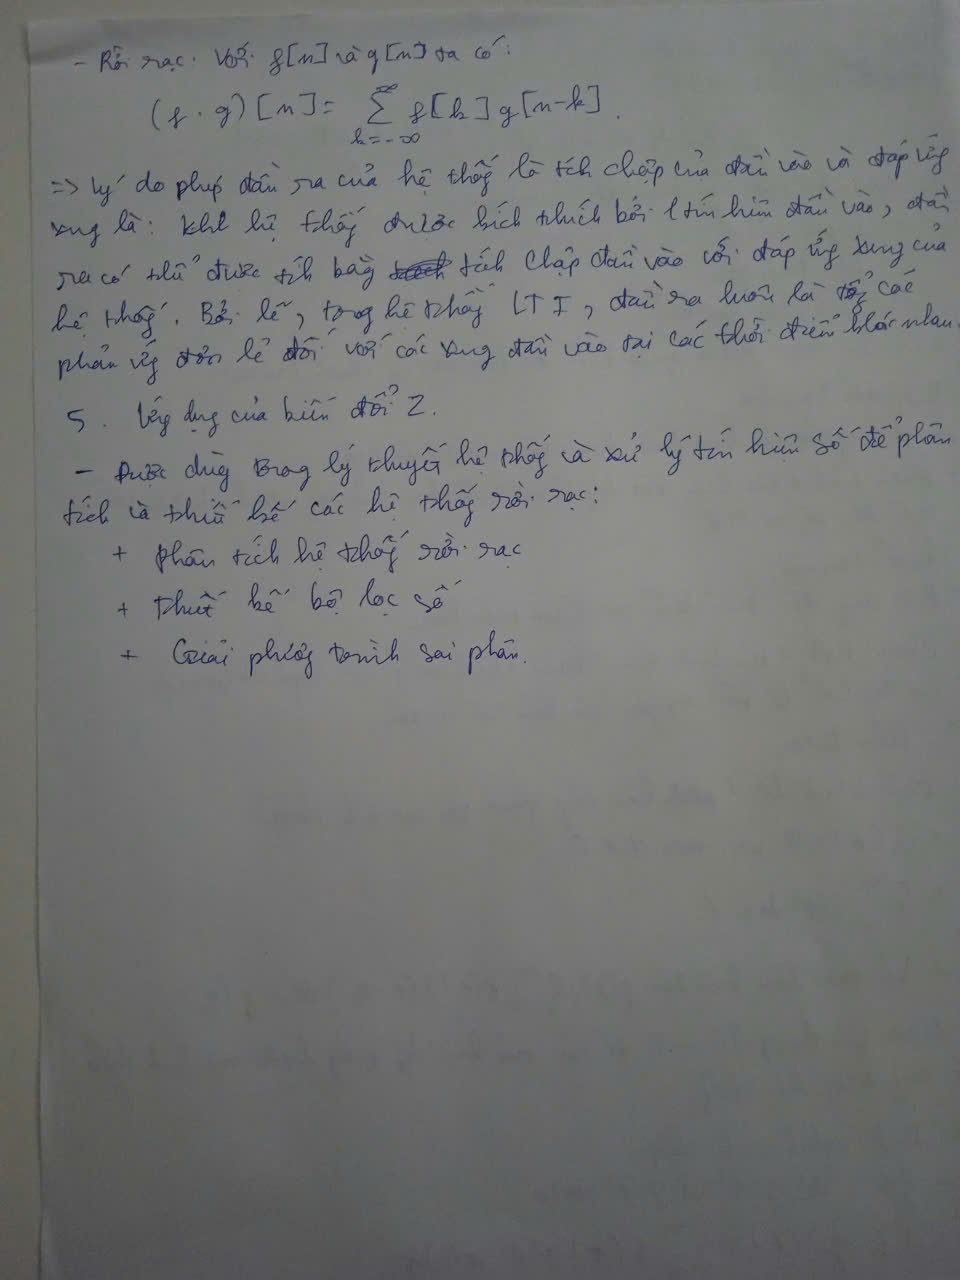 - Rời rạc: Với f[n] và g[n] ta có:
(f . g)[n] = ∑ f[k] g[n-k].
k=-∞ ∞
=> Lý do phép đầu ra của hệ thống là tích chập của đầu vào và đáp ứng
xung là: Khi hệ thống được kích thích bởi 1 tín hiệu đầu vào, đầu
ra có thể được tính bằng tích chập đầu vào với đáp ứng xung của
hệ thống. Bởi lẽ, trong hệ thống LTI, đầu ra luôn là tổng các
phản ứng đơn lẻ đối với các xung đầu vào tại các thời điểm khác nhau.
5. Ứng dụng của biến đổi Z.
- Được dùng trong lý thuyết hệ thống và xử lý tín hiệu số để phân
tích và thiết kế các hệ thống rời rạc:
+ phân tích hệ thống rời rạc
+ thiết kế bộ lọc số
+ Giải phương trình sai phân.